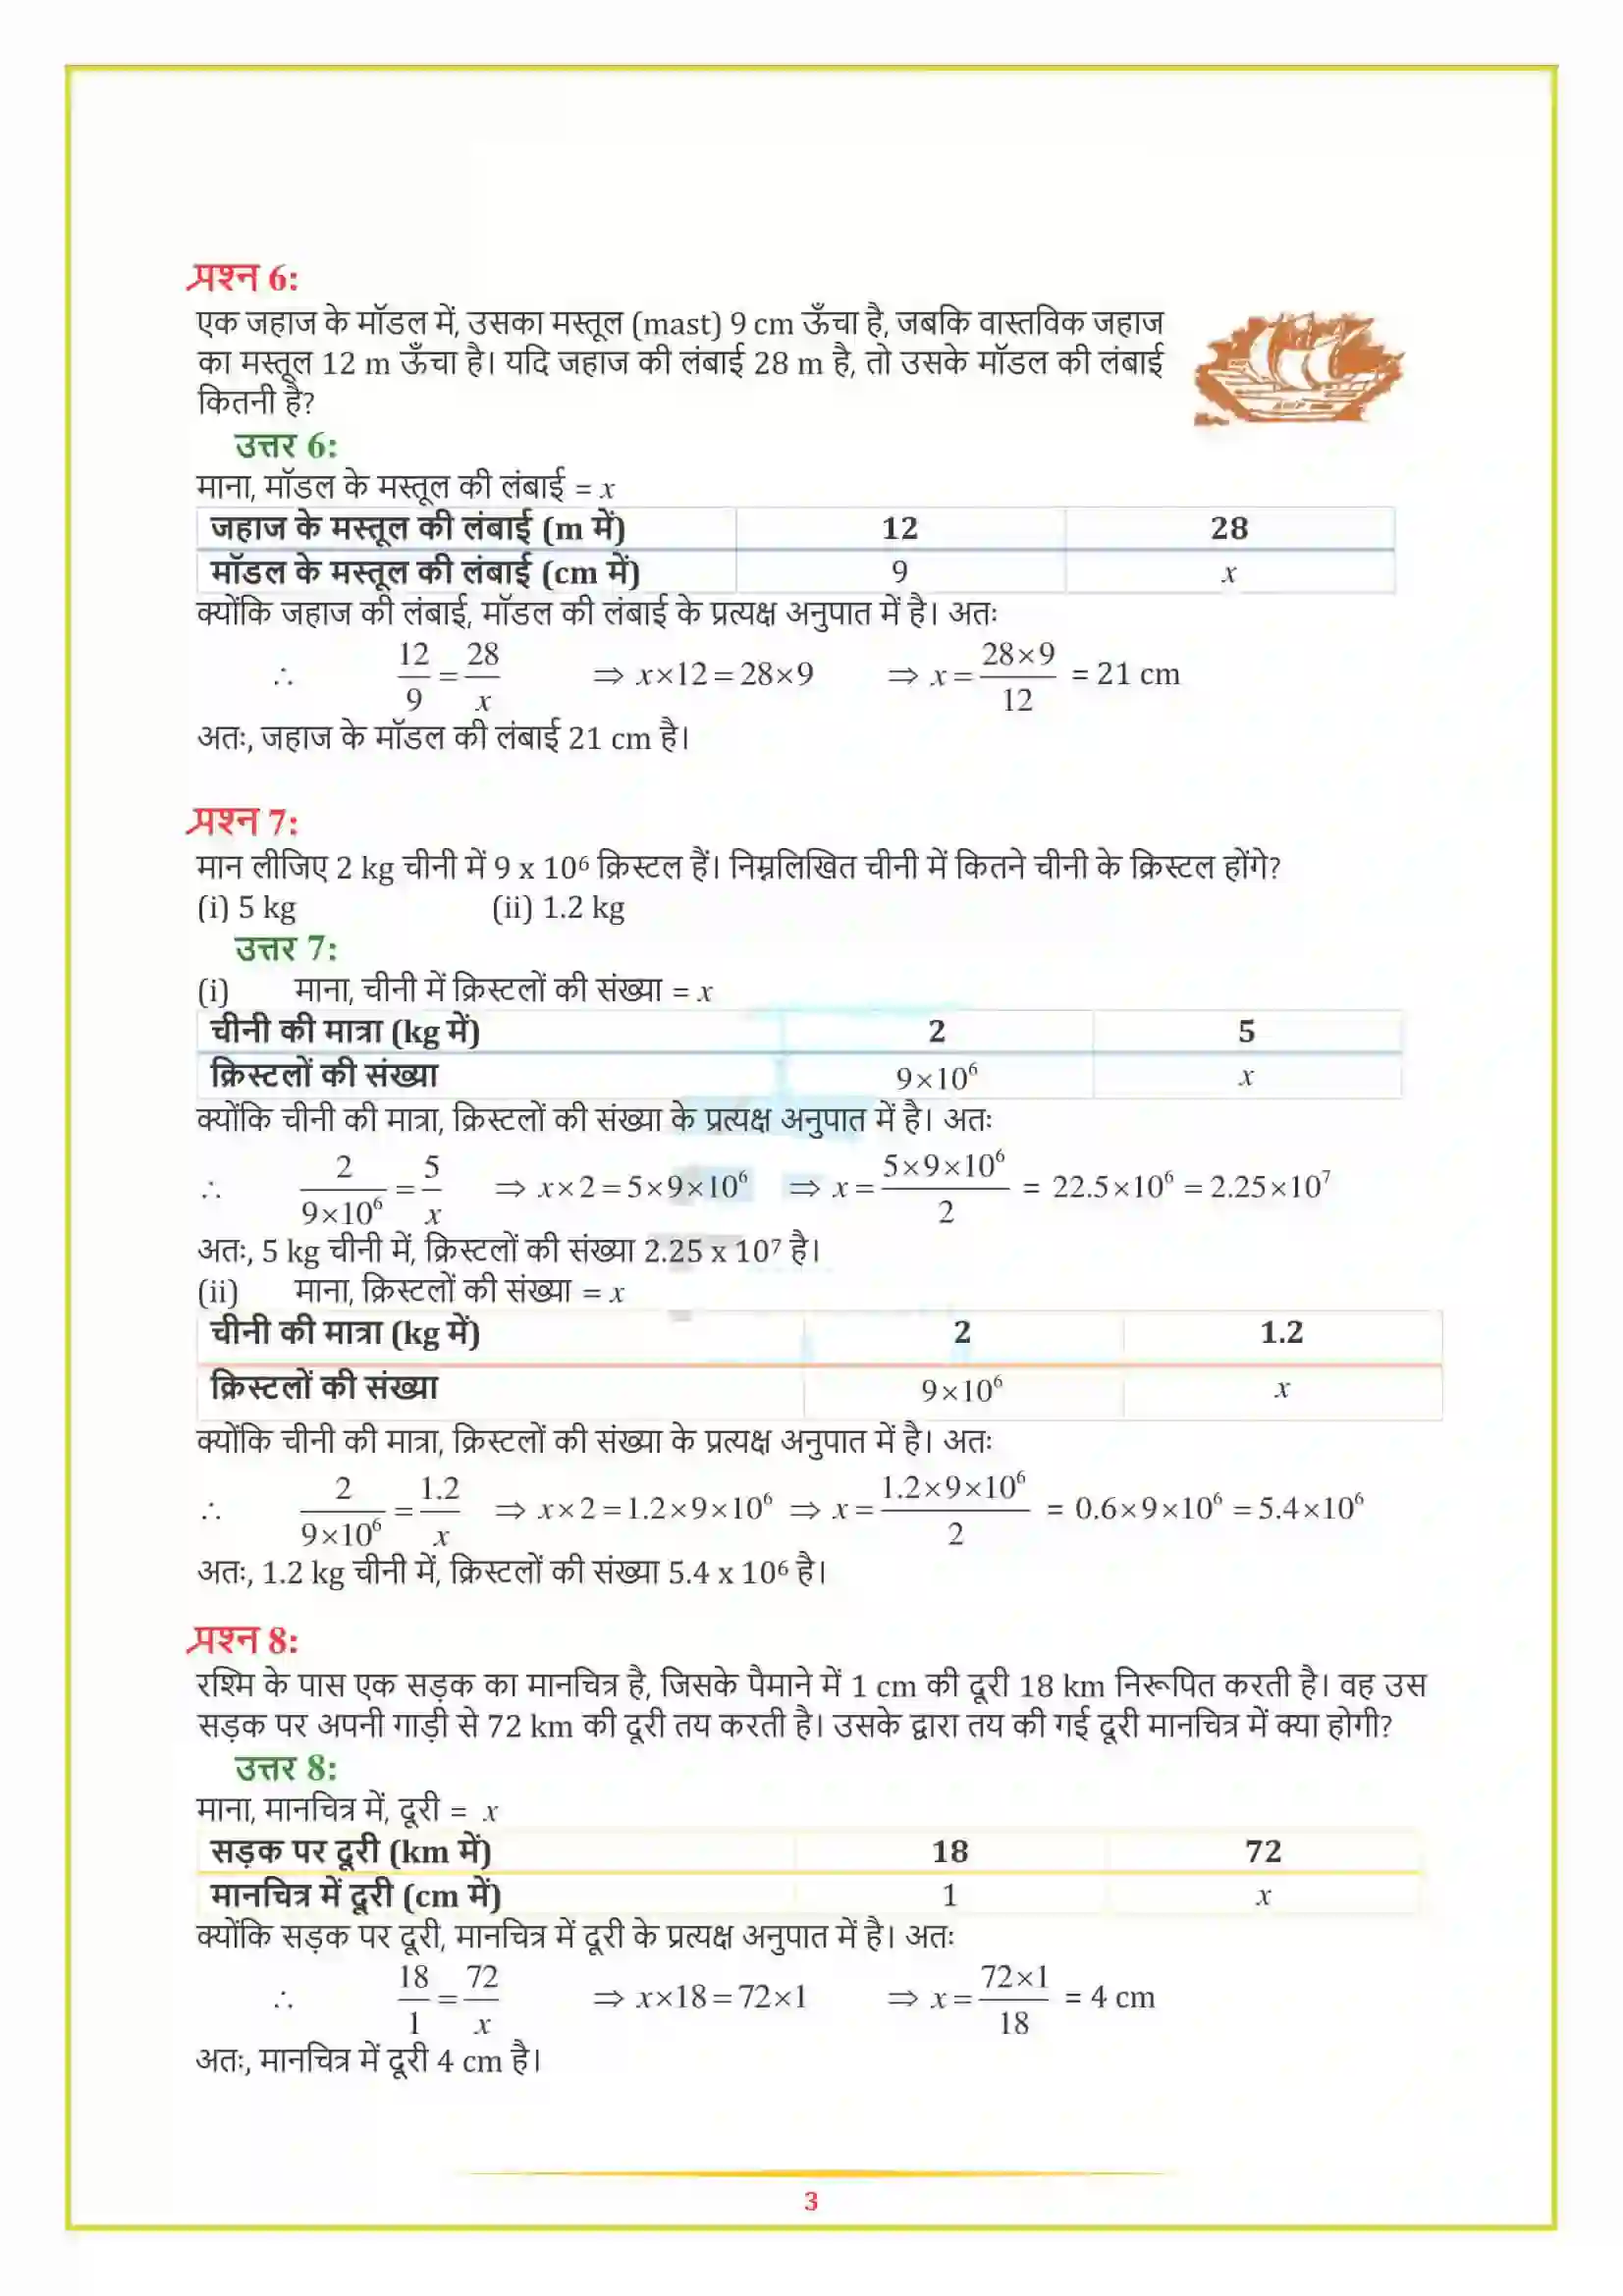 प्रश्न 6:
एक जहाज के मॉडल में, उसका मस्तूल (mast) 9 cm ऊँचा है, जबकि वास्तविक जहाज
का मस्तूल 12 m ऊँचा है। यदि जहाज की लंबाई 28 m है, तो उसके मॉडल की लंबाई
कितनी है?
उत्तर 6:
माना, मॉडल के मस्तूल की लंबाई = x
जहाज के मस्तूल की लंबाई (m में) 12 28
मॉडल के मस्तूल की लंबाई (cm में) 9 x
क्योंकि जहाज की लंबाई, मॉडल की लंबाई के प्रत्यक्ष अनुपात में है। अतः
∴ 12/9 = 28/x ⇒ x×12 = 28×9 ⇒ x = (28×9)/12 = 21 cm
अतः, जहाज के मॉडल की लंबाई 21 cm है।
प्रश्न 7:
मान लीजिए 2 kg चीनी में 9 x 10⁶ क्रिस्टल हैं। निम्नलिखित चीनी में कितने चीनी के क्रिस्टल होंगे?
(i) 5 kg (ii) 1.2 kg
उत्तर 7:
(i) माना, चीनी में क्रिस्टलों की संख्या = x
चीनी की मात्रा (kg में) 2 5
क्रिस्टलों की संख्या 9×10⁶ x
क्योंकि चीनी की मात्रा, क्रिस्टलों की संख्या के प्रत्यक्ष अनुपात में है। अतः
∴ 2/(9×10⁶) = 5/x ⇒ x×2 = 5×9×10⁶ ⇒ x = (5×9×10⁶)/2 = 22.5×10⁶ = 2.25×10⁷
अतः, 5 kg चीनी में, क्रिस्टलों की संख्या 2.25 x 10⁷ है।
(ii) माना, क्रिस्टलों की संख्या = x
चीनी की मात्रा (kg में) 2 1.2
क्रिस्टलों की संख्या 9×10⁶ x
क्योंकि चीनी की मात्रा, क्रिस्टलों की संख्या के प्रत्यक्ष अनुपात में है। अतः
∴ 2/(9×10⁶) = 1.2/x ⇒ x×2 = 1.2×9×10⁶ ⇒ x = (1.2×9×10⁶)/2 = 0.6×9×10⁶ = 5.4×10⁶
अतः, 1.2 kg चीनी में, क्रिस्टलों की संख्या 5.4 x 10⁶ है।
प्रश्न 8:
रश्मि के पास एक सड़क का मानचित्र है, जिसके पैमाने में 1 cm की दूरी 18 km निरूपित करती है। वह उस
सड़क पर अपनी गाड़ी से 72 km की दूरी तय करती है। उसके द्वारा तय की गई दूरी मानचित्र में क्या होगी?
उत्तर 8:
माना, मानचित्र में, दूरी = x
सड़क पर दूरी (km में) 18 72
मानचित्र में दूरी (cm में) 1 x
क्योंकि सड़क पर दूरी, मानचित्र में दूरी के प्रत्यक्ष अनुपात में है। अतः
∴ 18/1 = 72/x ⇒ x×18 = 72×1 ⇒ x = (72×1)/18 = 4 cm
अतः, मानचित्र में दूरी 4 cm है।
3